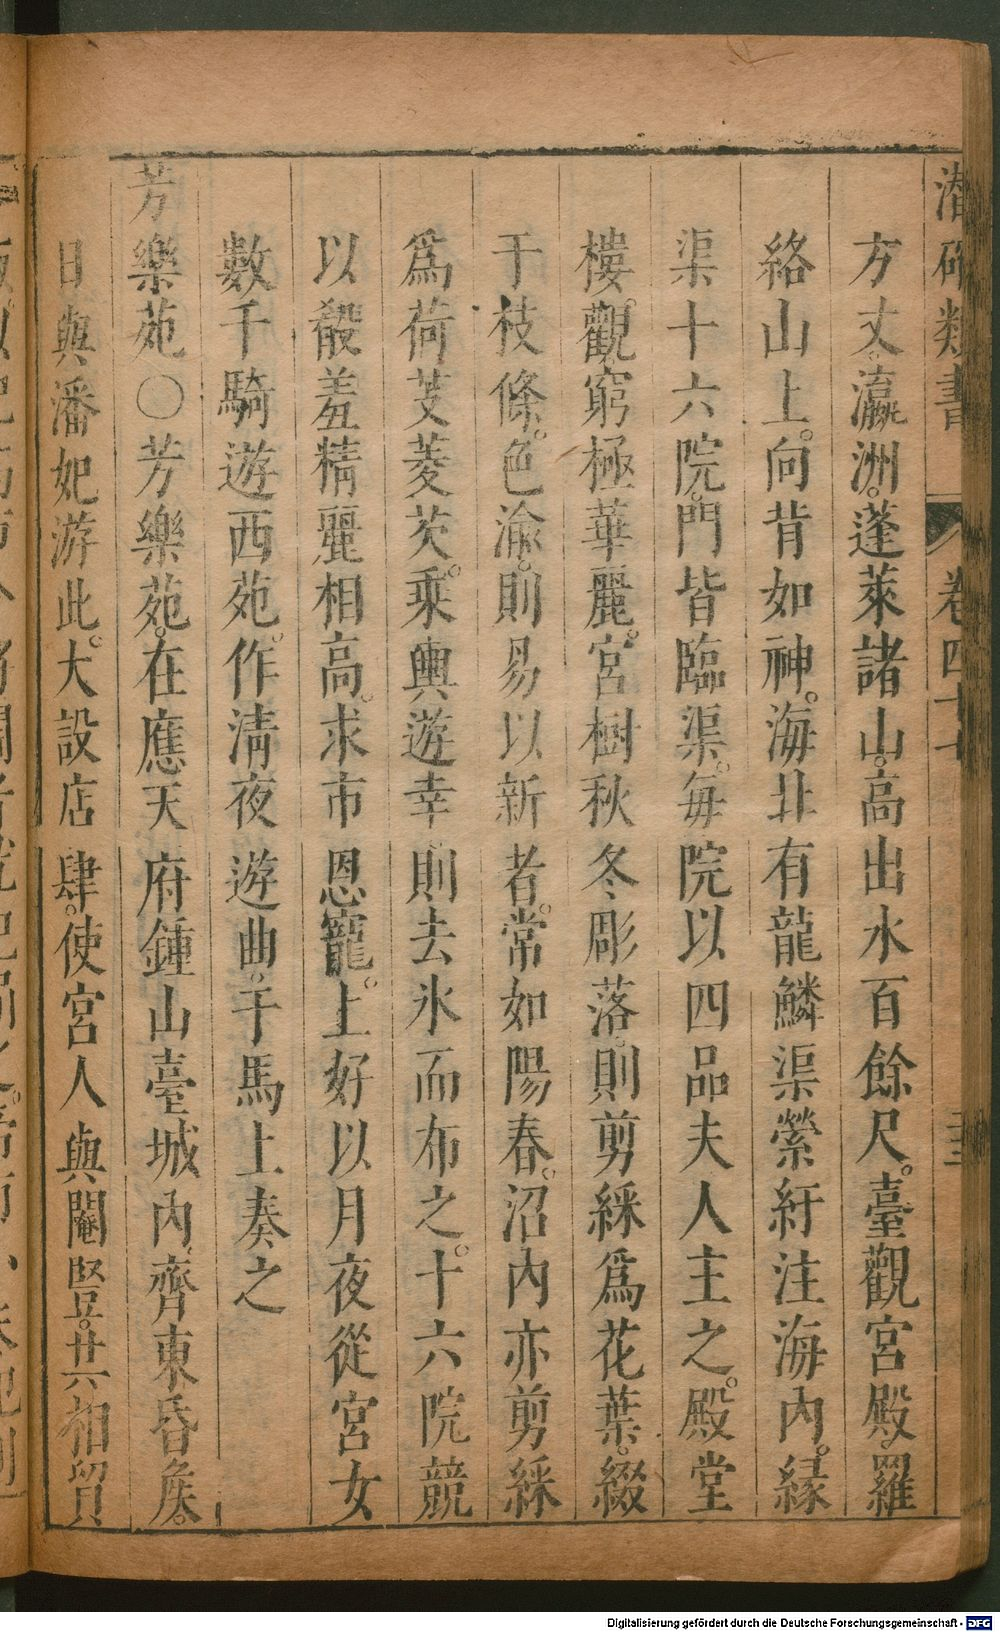 潛確類書 卷四十
方丈。瀛洲。蓬萊諸山。高出水百餘尺。臺觀宮殿。羅
絡山上。向背如神。海北有龍鱗渠縈紆注海內。緣
渠十六院。門皆臨渠。每院以四品夫人主之。殿堂
樓觀。窮極華麗。宮樹秋冬彫落。則剪綵爲花葉。綴
于枝條。色渝。則易以新者。常如陽春。沼內亦剪綵
爲荷芰菱芡。乘輿遊幸。則去氷而布之。十六院競
以殽羞精麗相高。求市恩寵。上好以月夜從宮女
數千騎遊西苑。作清夜遊曲。于馬上奏之
芳樂苑〇芳樂苑。在應天府鍾山臺城內。齊東昏侯。
日與潘妃游此。大設店肆。使宮人與閹豎。共相貿
Digitalisierung gefördert durch die Deutsche Forschungsgemeinschaft - DFG